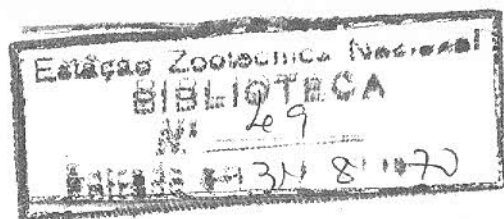 Estação Zootecnica Nacional
BIBLIOTECA
N.º 49
Entrada em 31 8 1970